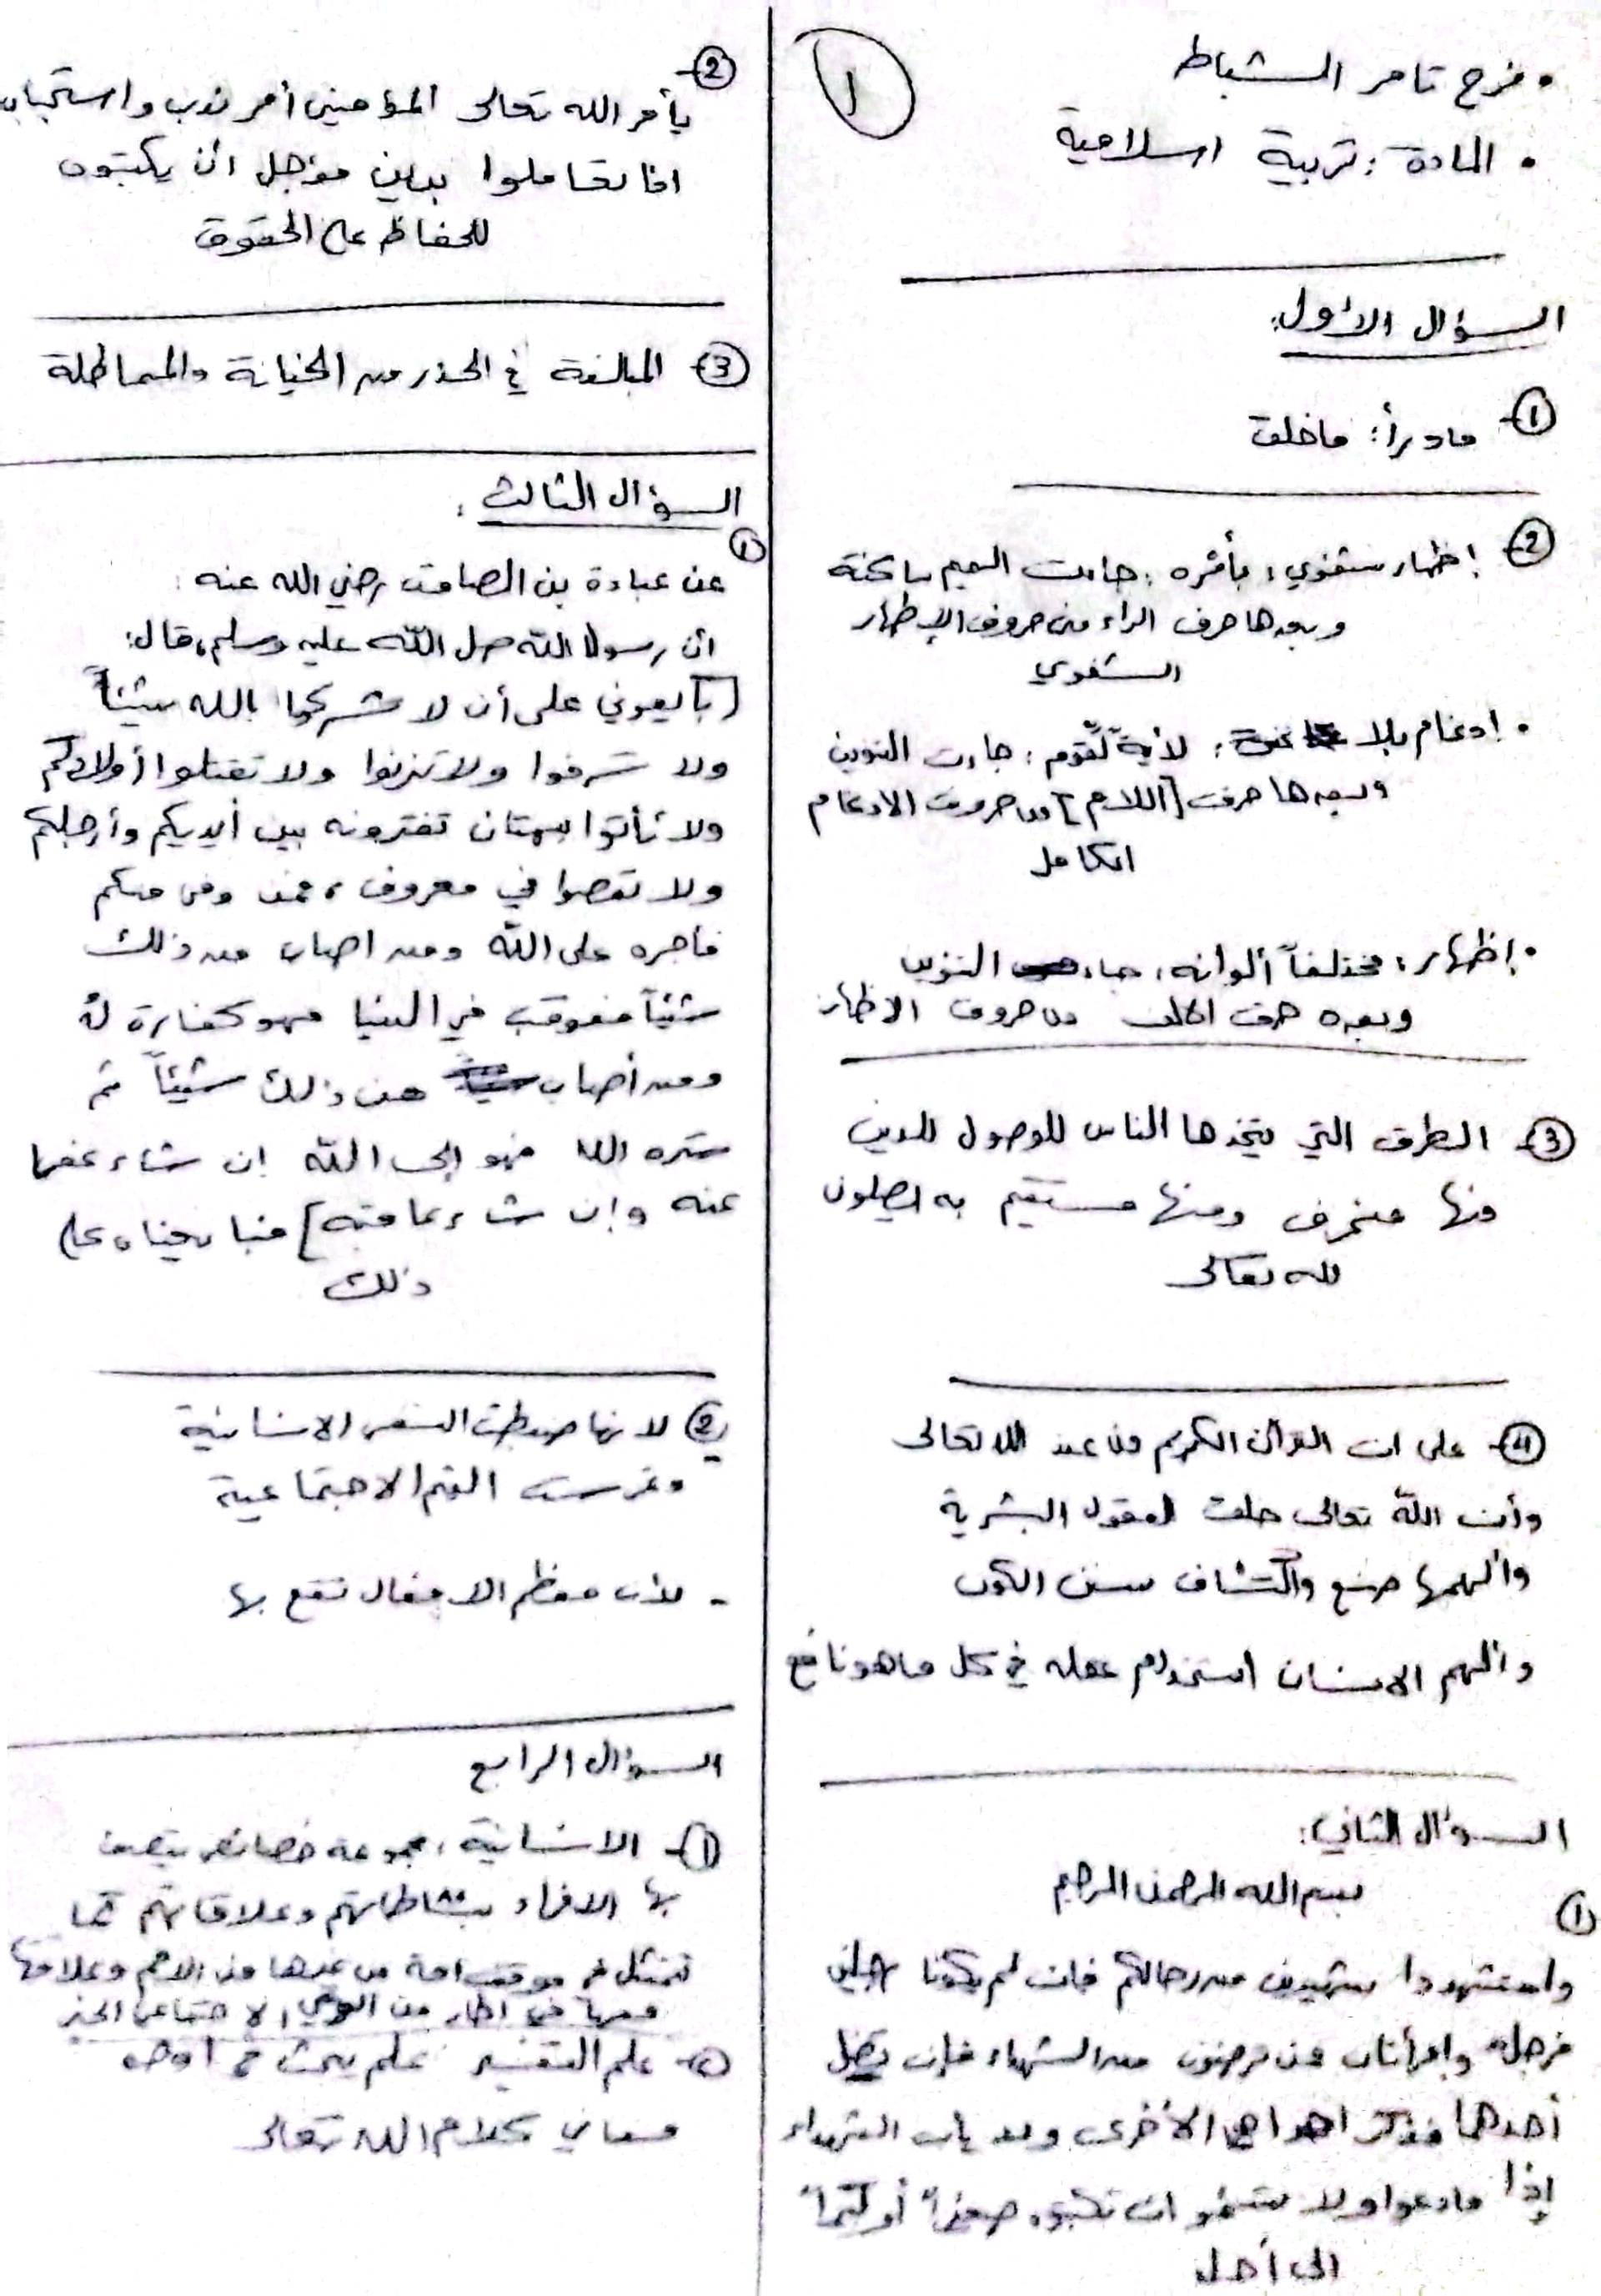 • فرح تامر الشباط
• المادة: تربية اسلامية
١
السؤال الأول:
1- ماذرأ: ماخلق
2- إظهار شفوي: بأمره: جاءت الميم ساكنة
وبعدها حرف الراء من حروف الإظهار
الشفوي
• إدغام بلا غنة: لأية لّقوم: جاءت التنوين
وبعدها حرف [اللام] من حروف الادغام
الكامل
• إظهار: مختلفاً ألوانه: جاء التنوين
وبعده حرف الالف من حروف الاظهار
3- الطرق التي يتخذها الناس للوصول للدين
منها منحرف ومنها مستقيم به يصلون
لله تعالى
4- على ان القرآن الكريم من عند الله تعالى
وأن الله تعالى خلق العقول البشرية
وألهمها صنع واكتشاف سنن الكون
وألهم الانسان استخدام عقله في كل ماهو نافع
السؤال الثاني:
1 بسم الله الرحمن الرحيم
واستشهدوا شهيدين من رجالكم فان لم يكونا رجلين
فرجل وامرأتان ممن ترضون من الشهداء فإن تضل
أحدهما فتذكر احداهما الأخرى ولا ياب الشهداء
إذا مادعوا ولا تسئموا ان تكتبوه صغيراً أو كبيراً
الى أجل
2- يأمر الله تعالى المؤمنين أمر ندب واستحباب
اذا تعاملوا بدين مؤجل أن يكتبون
للحفاظ على الحقوق
3- المبالغة في الحذر من الخيانة والمماطلة
السؤال الثالث:
1
عن عبادة بن الصامت رضي الله عنه:
أن رسول الله صل الله عليه وسلم، قال:
[بايعوني على أن لا تشركوا بالله شيئاً
ولا تسرقوا ولا تزنوا ولا تقتلوا أولادكم
ولا تأتوا ببهتان تفترونه بين أيديكم وأرجلكم
ولا تعصوا في معروف، فمن وفى منكم
فأجره على الله ومن اصاب من ذلك
شيئاً فعوقب في الدنيا فهو كفارة له
ومن أصاب من ذلك شيئاً ثم
ستره الله فهو إلى الله إن شاء عفا
عنه وإن شاء عاقبه] فبايعناه على
ذلك
2- لانها ضبطت النفس الانسانية
وغرست القيم الاجتماعية
- لأن معظم الافعال تقع بها
السؤال الرابع
1- الانسانية: مجموعة خصائص يتصف
بها الافراد بنشاطاتهم وعلاقاتهم كما
تتمثل في موقف امة من غيرها من الامم وعلاقتها
معها في اطار من الوعي الاجتماعي
2- علم التفسير علم يبحث في
معاني كلام الله تعالى